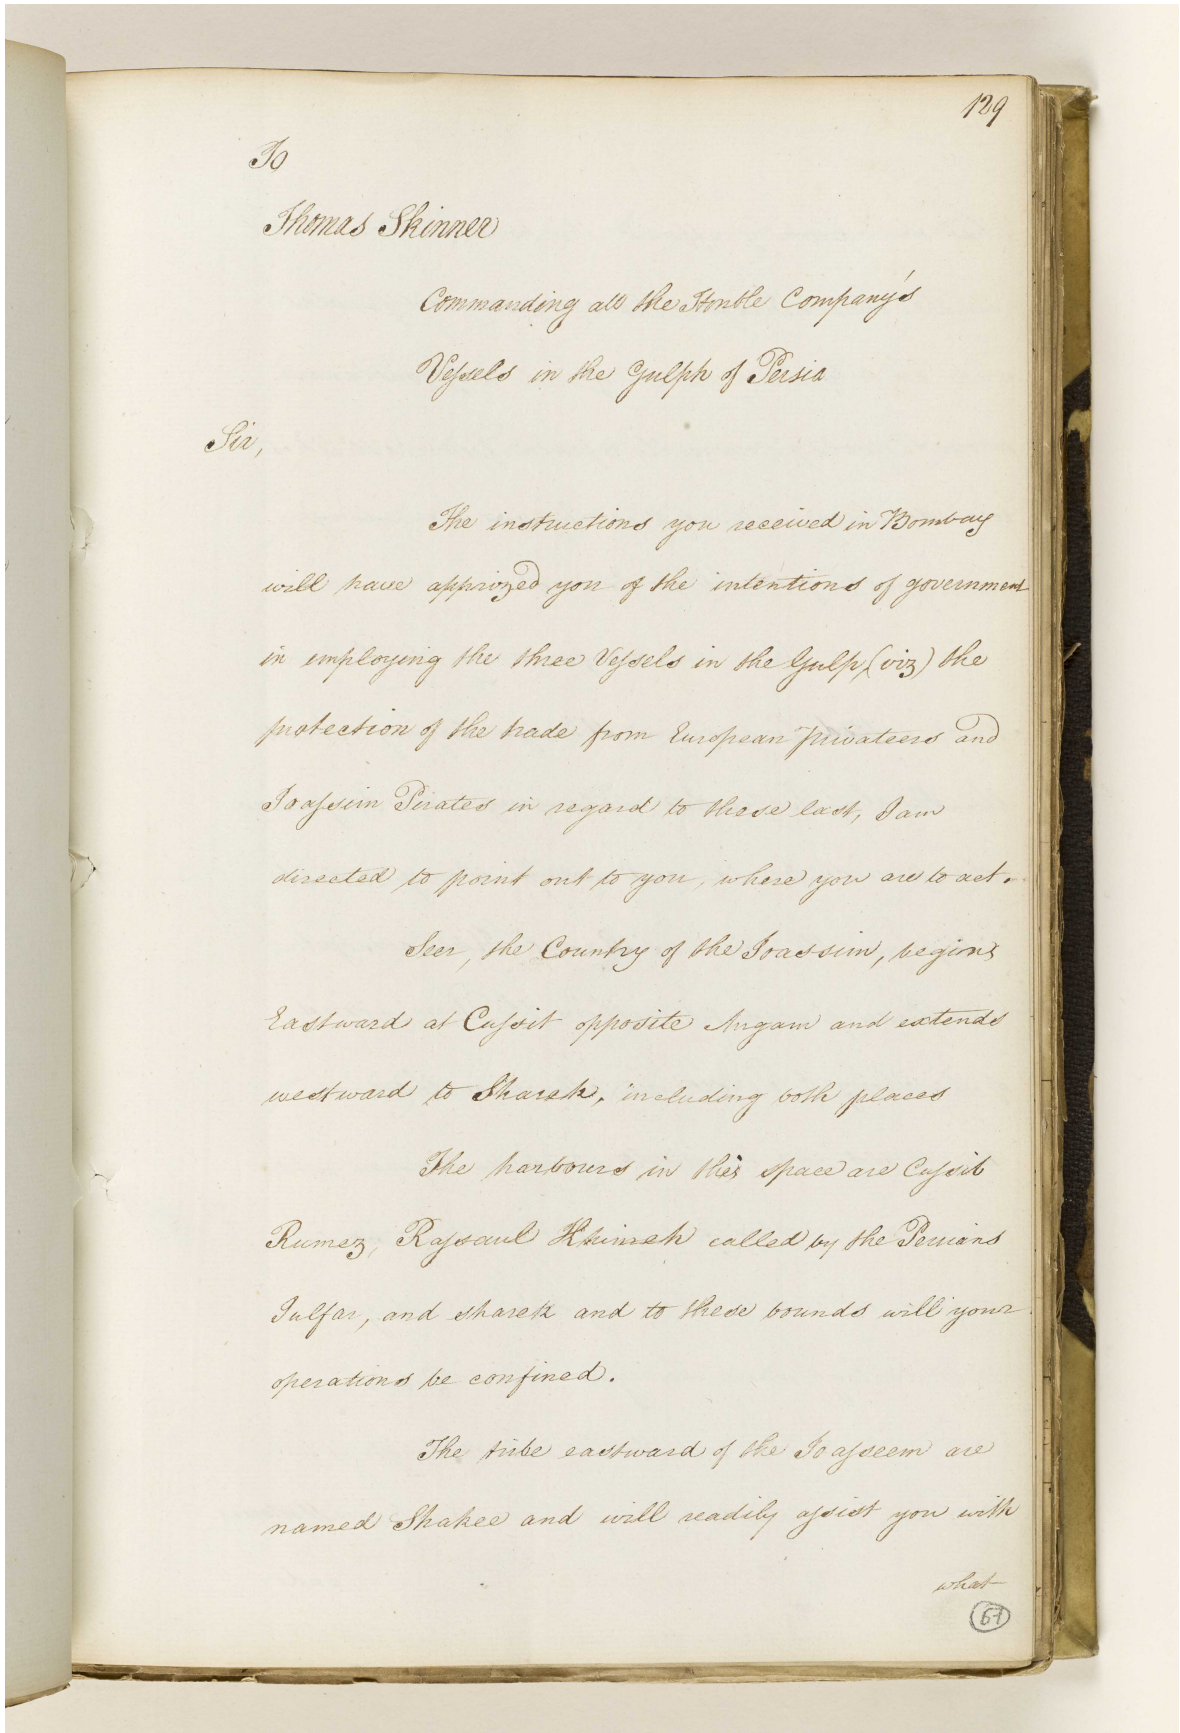 129
To
Thomas Skinner
Commanding all the Honble Company's
Vessels in the Gulph of Persia
Sir,
The instructions you received in Bombay
will have apprized you of the intentions of government
in employing the three Vessels in the Gulph, (viz) the
protection of the trade from European Privateers and
Joassim Pirates in regard to these last, I am
directed to point out to you, where you are to act.
Seer, the Country of the Joassim, begins
Eastward at Cussit opposite Angam and extends
westward to Sharek, including both places
The harbours in this space are Cussit
Rumez, Rassaul Khimeh called by the Persians
Julfar, and sharek and to these bounds will your
operations be confined.
The tribe eastward of the Joasseem are
named Shahee and will readily assist you with
what
67